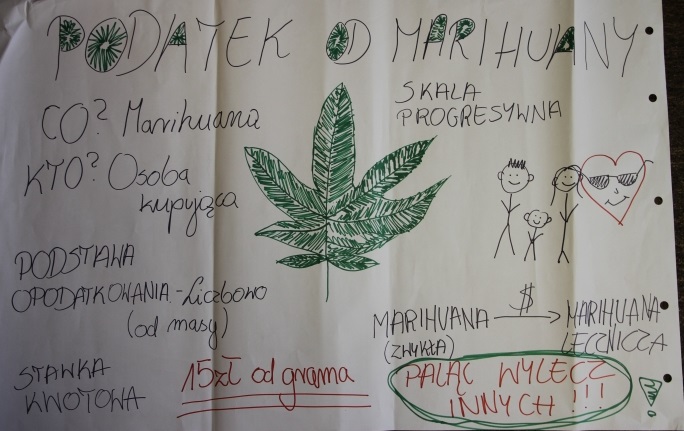 PODATEK OD MARIHUANY
CO? Marihuana
KTO? Osoba
kupująca
PODSTAWA
OPODATKOWANIA - Liczbowo
(od masy)
STAWKA
KWOTOWA
15zł od grama
SKALA
PROGRESYWNA
$
MARIHUANA → MARIHUANA
(ZWYKŁA) LECZNICZA
PALĄC WYLECZ
INNYCH!!!